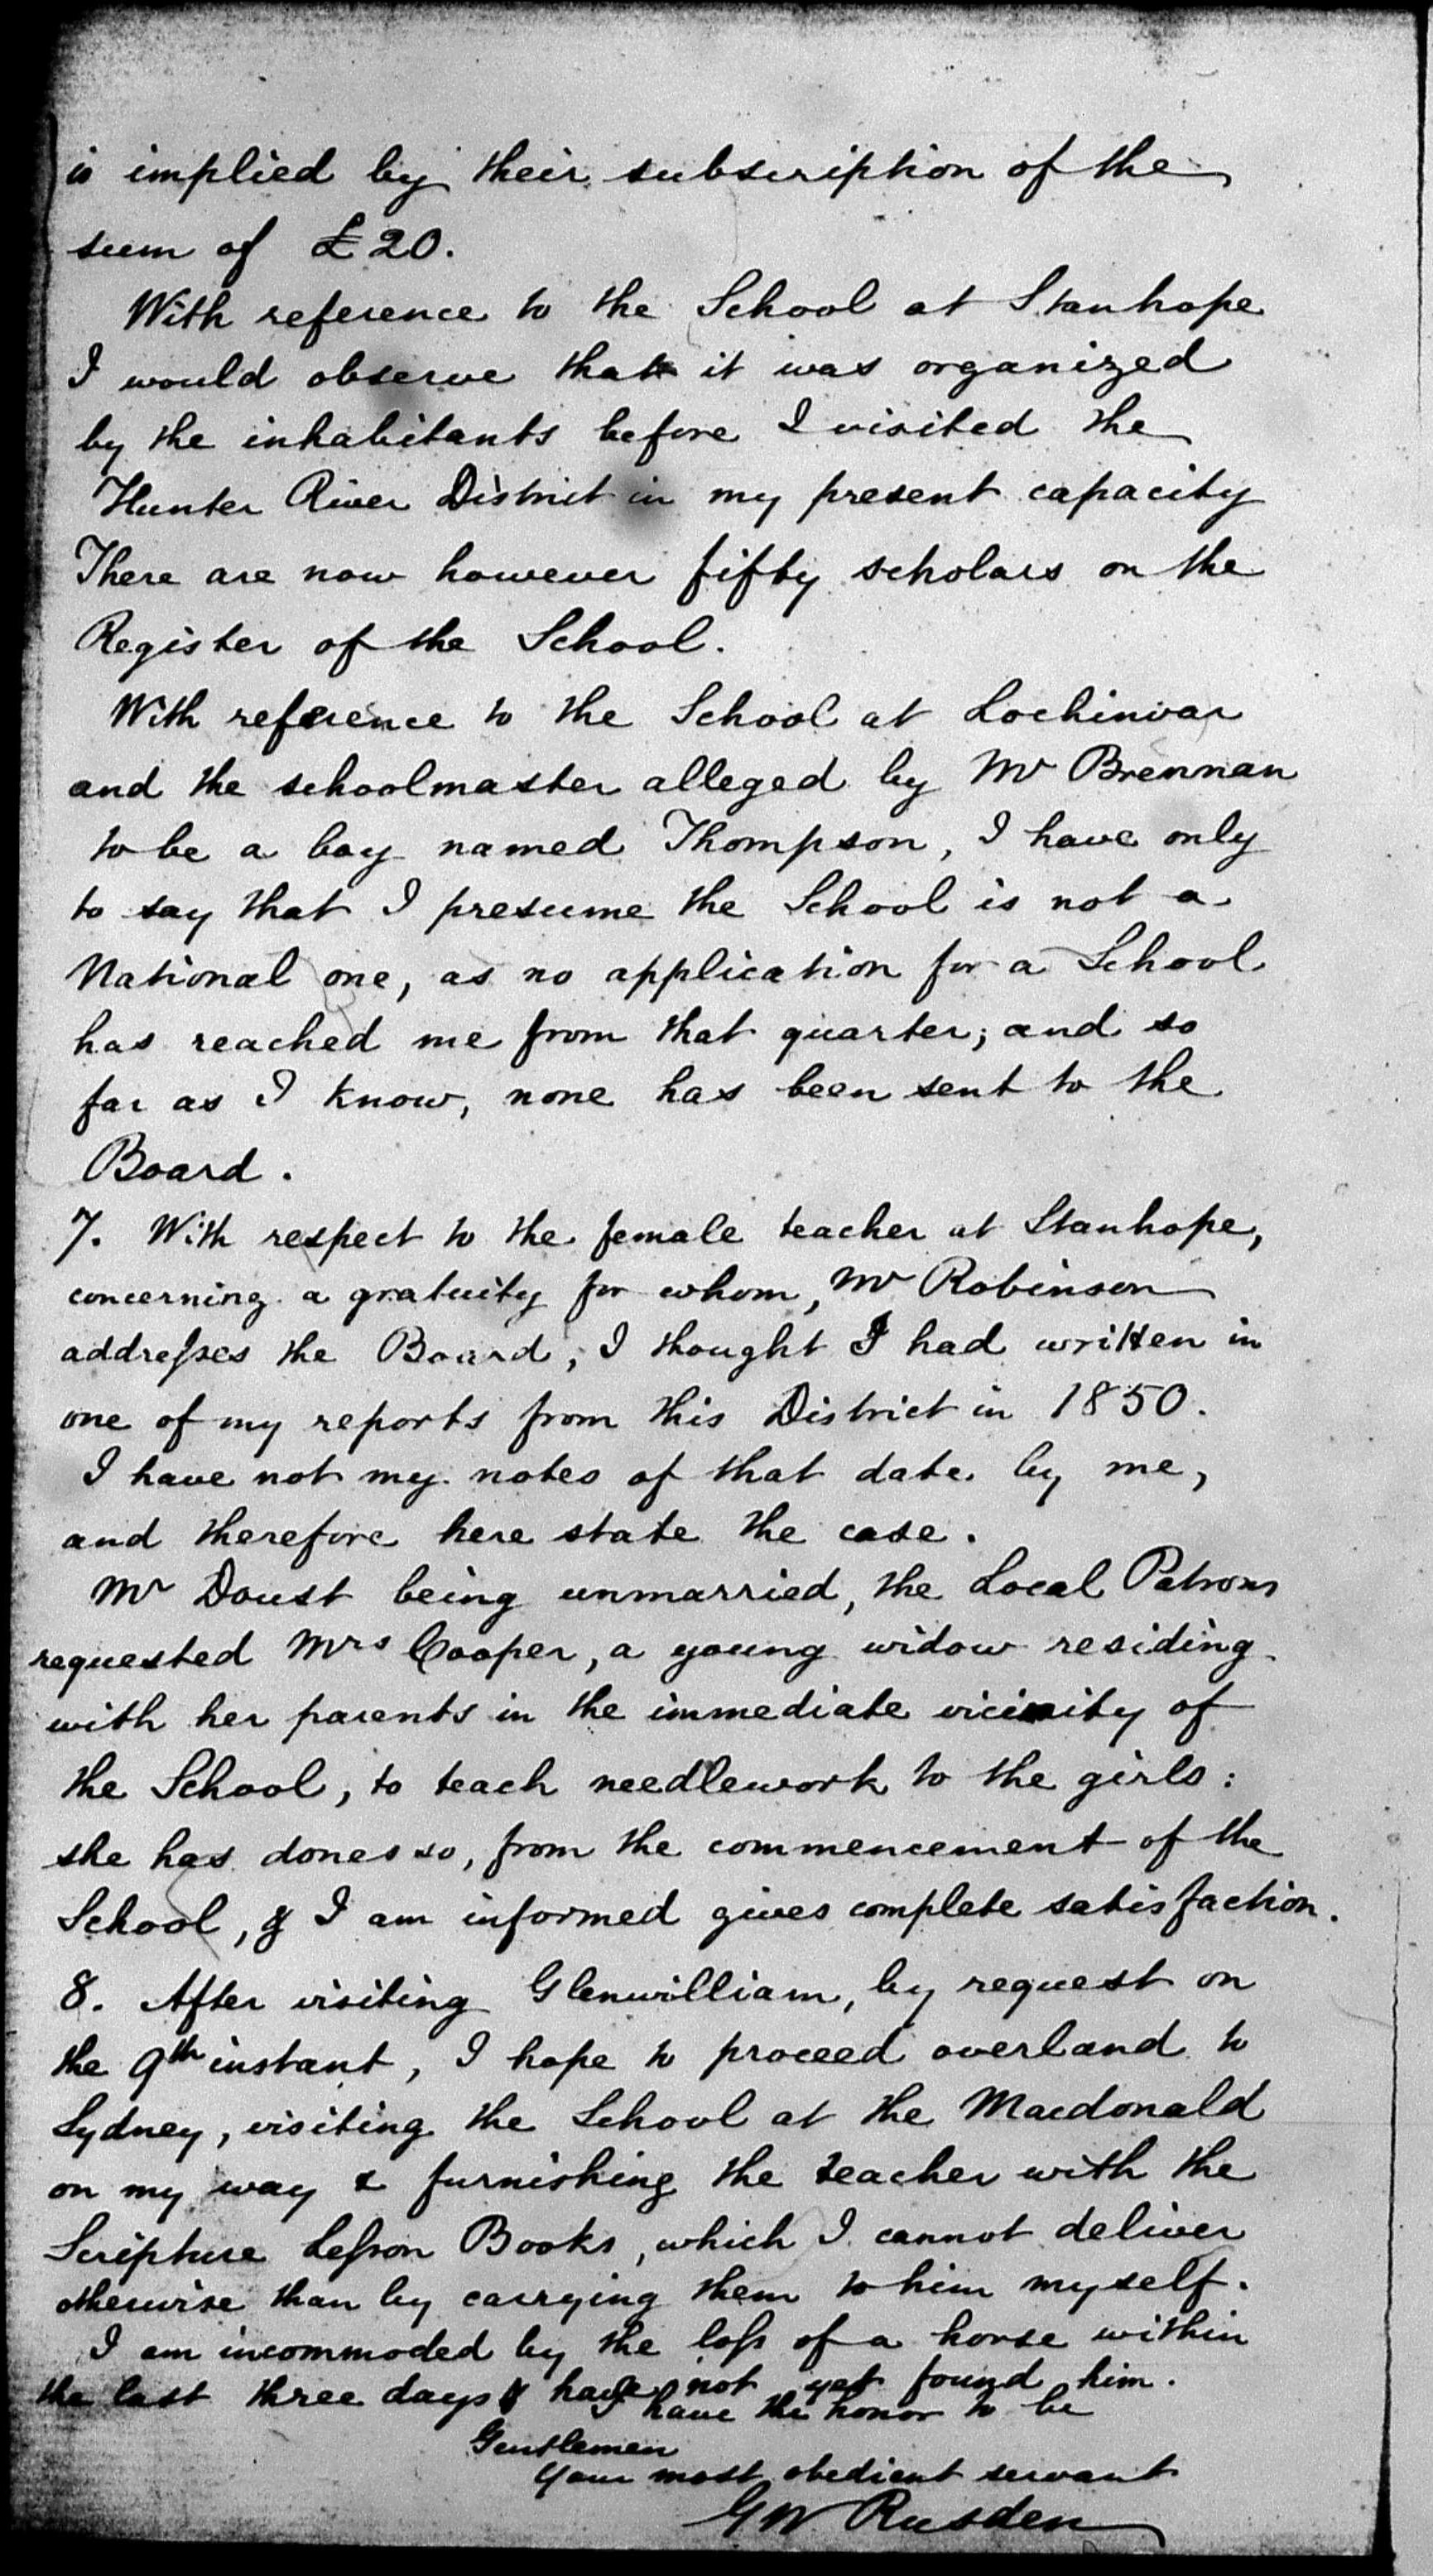 is implied by their subscription of the
sum of £20.
With reference to the School at Stanhope
I would observe that it was organized
by the inhabitants before I visited the
Hunter River District in my present capacity
There are now however fifty scholars on the
Register of the School.
With reference to the School at Lochinvar
and the schoolmaster alleged by Mr Brennan
to be a boy named Thompson, I have only
to say that I presume the School is not a
National one, as no application for a School
has reached me from that quarter; and so
far as I know, none has been sent to the
Board.
7. With respect to the female teacher at Stanhope,
concerning a gratuity for whom, Mr Robinson
addresses the Board, I thought I had written in
one of my reports from this District in 1850.
I have not my notes of that date by me,
and therefore here state the case.
Mr Doust being unmarried, the Local Patrons
requested Mrs Cooper, a young widow residing
with her parents in the immediate vicinity of
the School, to teach needlework to the girls:
she has dones so, from the commencement of the
School, & I am informed gives complete satisfaction.
8. After visiting Glenwilliam, by request on
the 9th instant, I hope to proceed overland to
Sydney, visiting the School at the Macdonald
on my way & furnishing the teacher with the
Scripture Lesson Books, which I cannot deliver
otherwise than by carrying them to him myself.
I am incommoded by the loss of a horse within
the last three days & have not yet found him.
I have the honor to be
Gentlemen
Your most obedient servant
G W Rusden